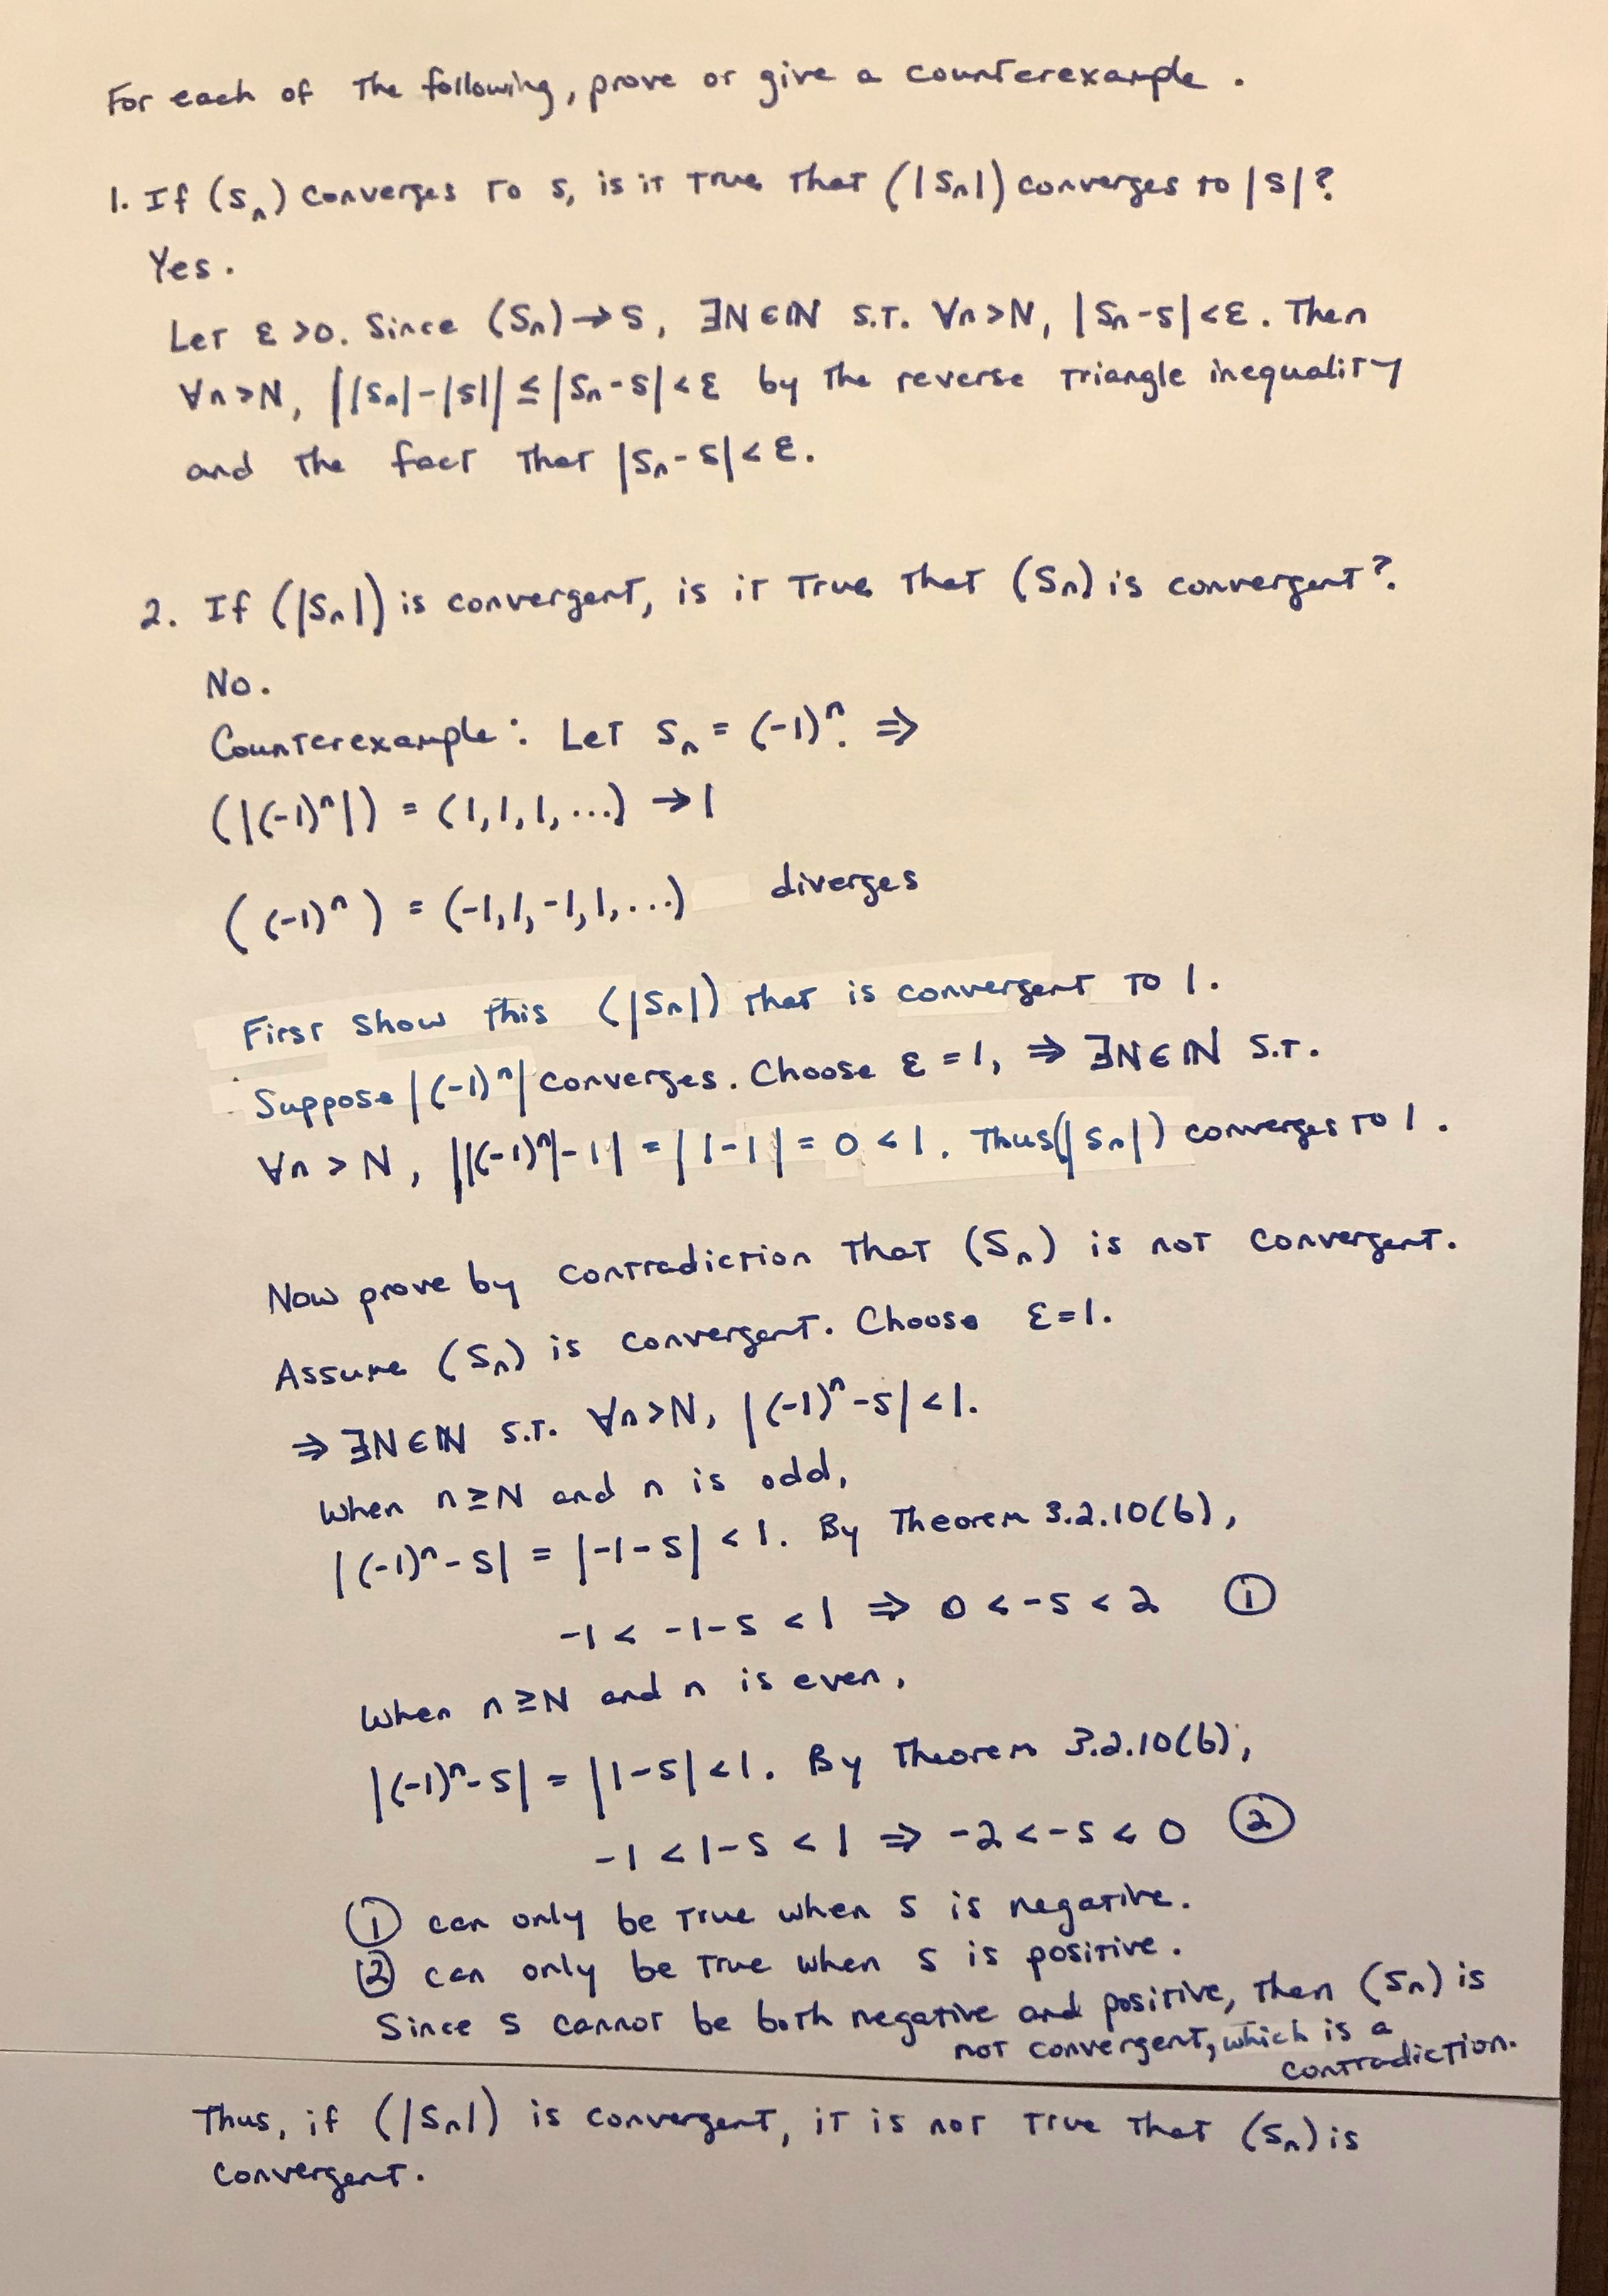 For each of the following, prove or give a counterexample.
1. If (sₙ) converges to s, is it true that (|sₙ|) converges to |s|?
Yes.
Let ε >0. Since (sₙ)→s, ∃N∈ℕ s.t. ∀n>N, |sₙ-s|<ε. Then
∀n>N, ||sₙ|-|s|| ≤ |sₙ-s|<ε by the reverse triangle inequality
and the fact that |sₙ-s|<ε.
2. If (|sₙ|) is convergent, is it true that (sₙ) is convergent?
No.
Counterexample: Let sₙ = (-1)ⁿ. ⇒
(|(-1)ⁿ|) = (1,1,1,...) →1
((-1)ⁿ) = (-1,1,-1,1,...) diverges
First show this (|sₙ|) that is convergent to 1.
Suppose |(-1)ⁿ| converges. Choose ε =1, ⇒ ∃N∈ℕ s.t.
∀n > N, ||(-1)ⁿ|-1| = |1-1| = 0 < 1. Thus (|sₙ|) converges to 1.
Now prove by contradiction that (sₙ) is not convergent.
Assume (sₙ) is convergent. Choose ε=1.
⇒ ∃N∈ℕ s.t. ∀n>N, |(-1)ⁿ-s|<1.
When n≥N and n is odd,
|(-1)ⁿ-s| = |-1-s| < 1. By Theorem 3.2.10(b),
-1 < -1-s < 1 ⇒ 0 < -s < 2 ①
When n≥N and n is even,
|(-1)ⁿ-s| = |1-s|<1. By Theorem 3.2.10(b),
-1 < 1-s < 1 ⇒ -2 < -s < 0 ②
① can only be true when s is negative.
② can only be true when s is positive.
Since s cannot be both negative and positive, then (sₙ) is
not convergent, which is a
contradiction.
Thus, if (|sₙ|) is convergent, it is not true that (sₙ) is
convergent.